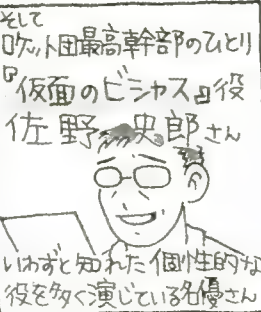 そして
ロケット団最高幹部のひとり
『仮面のビシャス』役
佐野史郎さん
いわずと知れた個性的な
役を多く演じている名優さん